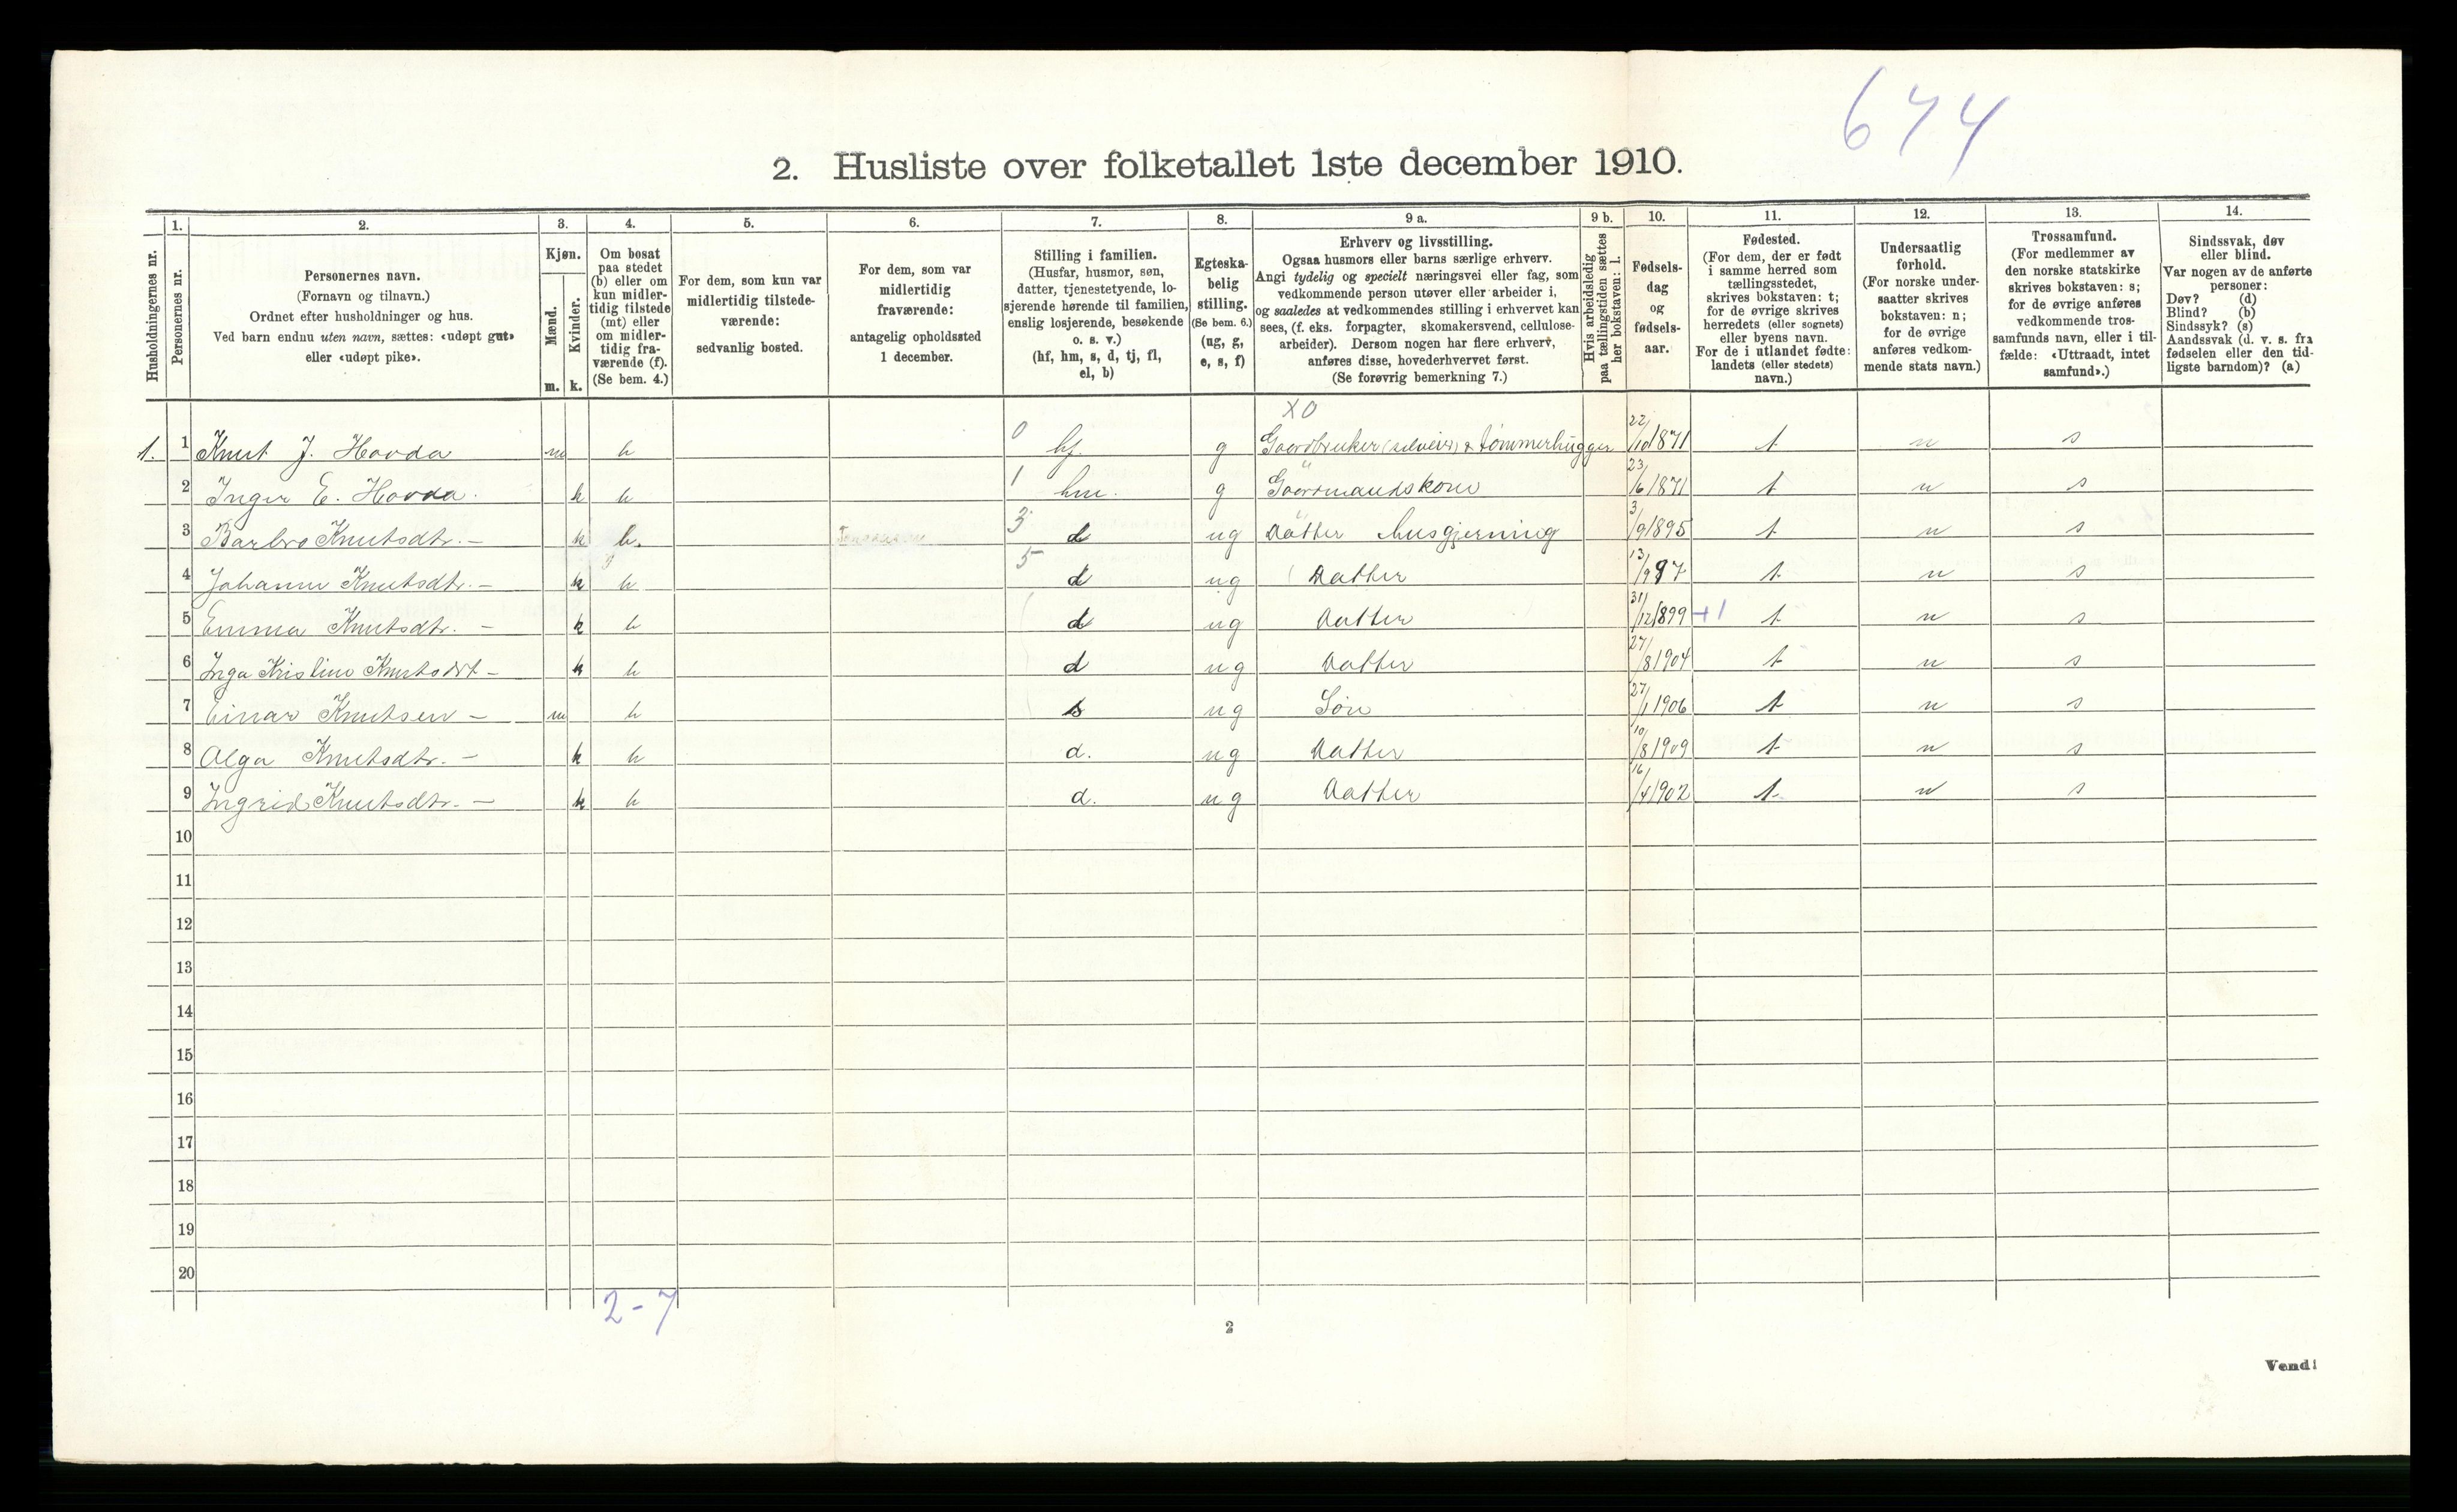 644
2. Husliste over folketallet 1ste december 1910.
Husholdningernes nr.
1.
Personernes nr.
2.
Personernes navn.
(Fornavn og tilnavn.)
Ordnet efter husholdninger og hus.
Ved barn endnu uten navn, sættes: «udøpt gut»
eller «udøpt pike».
3.
Kjøn.
Mænd.
m.
Kvinder.
k.
4.
Om bosat
paa stedet
(b) eller om
kun midler-
tidig tilstede
(mt) eller
om midler-
tidig fra-
værende (f).
(Se bem. 4.)
5.
For dem, som kun var
midlertidig tilstede-
værende:
sedvanlig bosted.
6.
For dem, som var
midlertidig
fraværende:
antagelig opholdssted
1 december.
7.
Stilling i familien.
(Husfar, husmor, søn,
datter, tjenestetyende, lo-
sjerende hørende til familien,
enslig losjerende, besøkende
o. s. v.)
(hf, hm, s, d, tj, fl,
el, b)
8.
Egteska-
belig
stilling.
(Se bem. 6.)
(ug, g,
e, s, f)
9 a.
Erhverv og livsstilling.
Ogsaa husmors eller barns særlige erhverv.
Angi tydelig og specielt næringsvei eller fag, som
vedkommende person utøver eller arbeider i,
og saaledes at vedkommendes stilling i erhvervet kan
sees, (f. eks. forpagter, skomakersvend, cellulose-
arbeider). Dersom nogen har flere erhverv,
anføres disse, hovederhvervet først.
(Se forøvrig bemerkning 7.)
9 b.
Hvis arbeidsledig
paa tællingstiden sættes
her bokstaven: l.
10.
Fødsels-
dag
og
fødsels-
aar.
11.
Fødested.
(For dem, der er født
i samme herred som
tællingsstedet,
skrives bokstaven: t;
for de øvrige skrives
herredets (eller sognets)
eller byens navn.
For de i utlandet fødte:
landets (eller stedets)
navn.)
12.
Undersaatlig
forhold.
(For norske under-
saatter skrives
bokstaven: n;
for de øvrige
anføres vedkom-
mende stats navn.)
13.
Trossamfund.
(For medlemmer av
den norske statskirke
skrives bokstaven: s;
for de øvrige anføres
vedkommende tros-
samfunds navn, eller i til-
fælde: «Uttraadt, intet
samfund».)
14.
Sindssvak, døv
eller blind.
Var nogen av de anførte
personer:
Døv? (d)
Blind? (b)
Sindssyk? (s)
Aandssvak (d. v. s. fra
fødselen eller den tid-
ligste barndom)? (a)
X0
1. 1 Knut J. Hovda m b 0 hf. g Gaardbruker (selveier) & tømmerhugger 22/10 1871 t n s
2 Inger E. Hovda. k b 1 hm. g Gaardmandskone 23/6 1871 t n s
3 Barbro Knutsdtr. – k b. 3 d ug Datter husgjerning 3/9 1895 t n s
4 Johanne Knutsdtr. – k b 5 d ug Datter 13/9 97 t n s
5 Emma Knutsdtr. – k b d ug Datter 31/12 1899 +1 t n s
6 Inga Kristine Knutsdtr – k b d ug Datter 27/8 1904 t n s
7 Einar Knutsen – m b s ug Søn 27/1 1906 t n s
8 Olga Knutsdtr. – k b d. ug Datter 10/8 1909 t n s
9 Ingrid Knutsdtr. – k b d. ug Datter 16/4 1902 t n s
10
11
12
13
14
15
16
17
18
19
20
2-7
2
Vend!